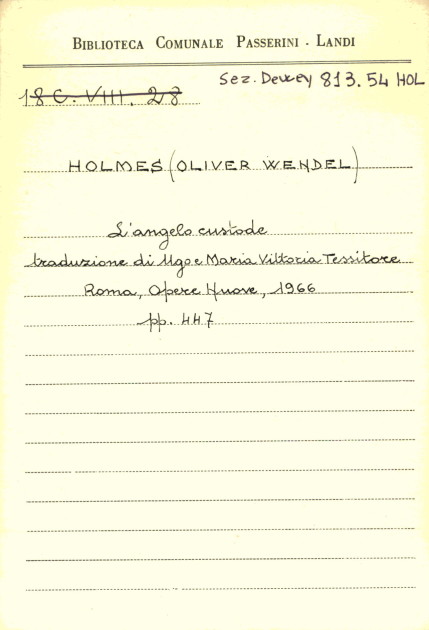 BIBLIOTECA COMUNALE PASSERINI - LANDI
Sez. Dewey 813.54 HOL
18 C. VIII. 28
HOLMES (OLIVER WENDEL)
L'angelo custode
traduzione di Ugo e Maria Vittoria Tessitore
Roma, Opere Nuove, 1966
pp. 447